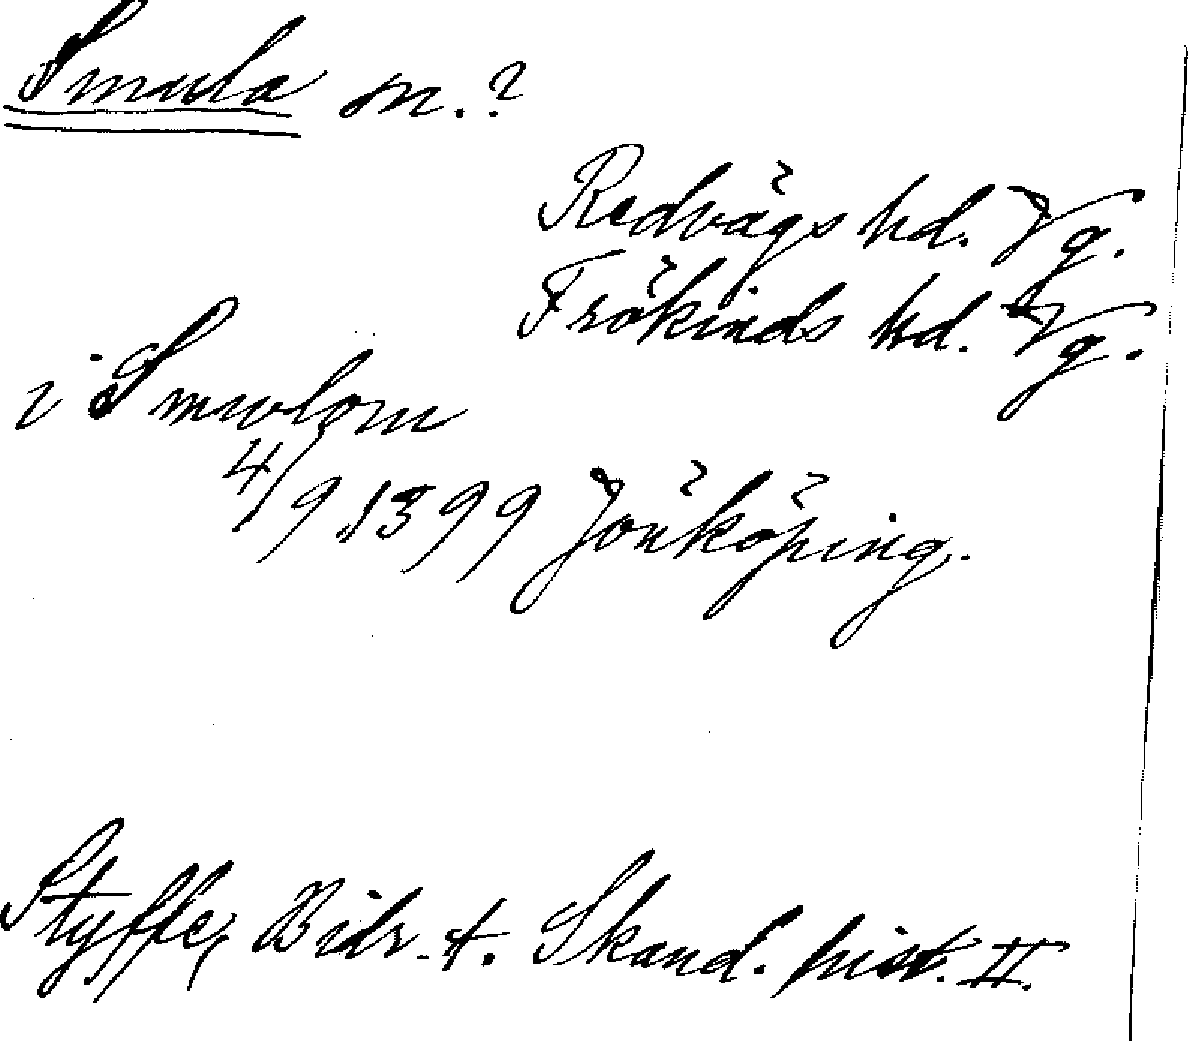 Smula sn.?
Redvägs hd. Vg.
Frökinds hd. Vg.
i Smulom
4/9 1399 Jönköping.
Styffe, Bidr. t. Skand. hist. II.